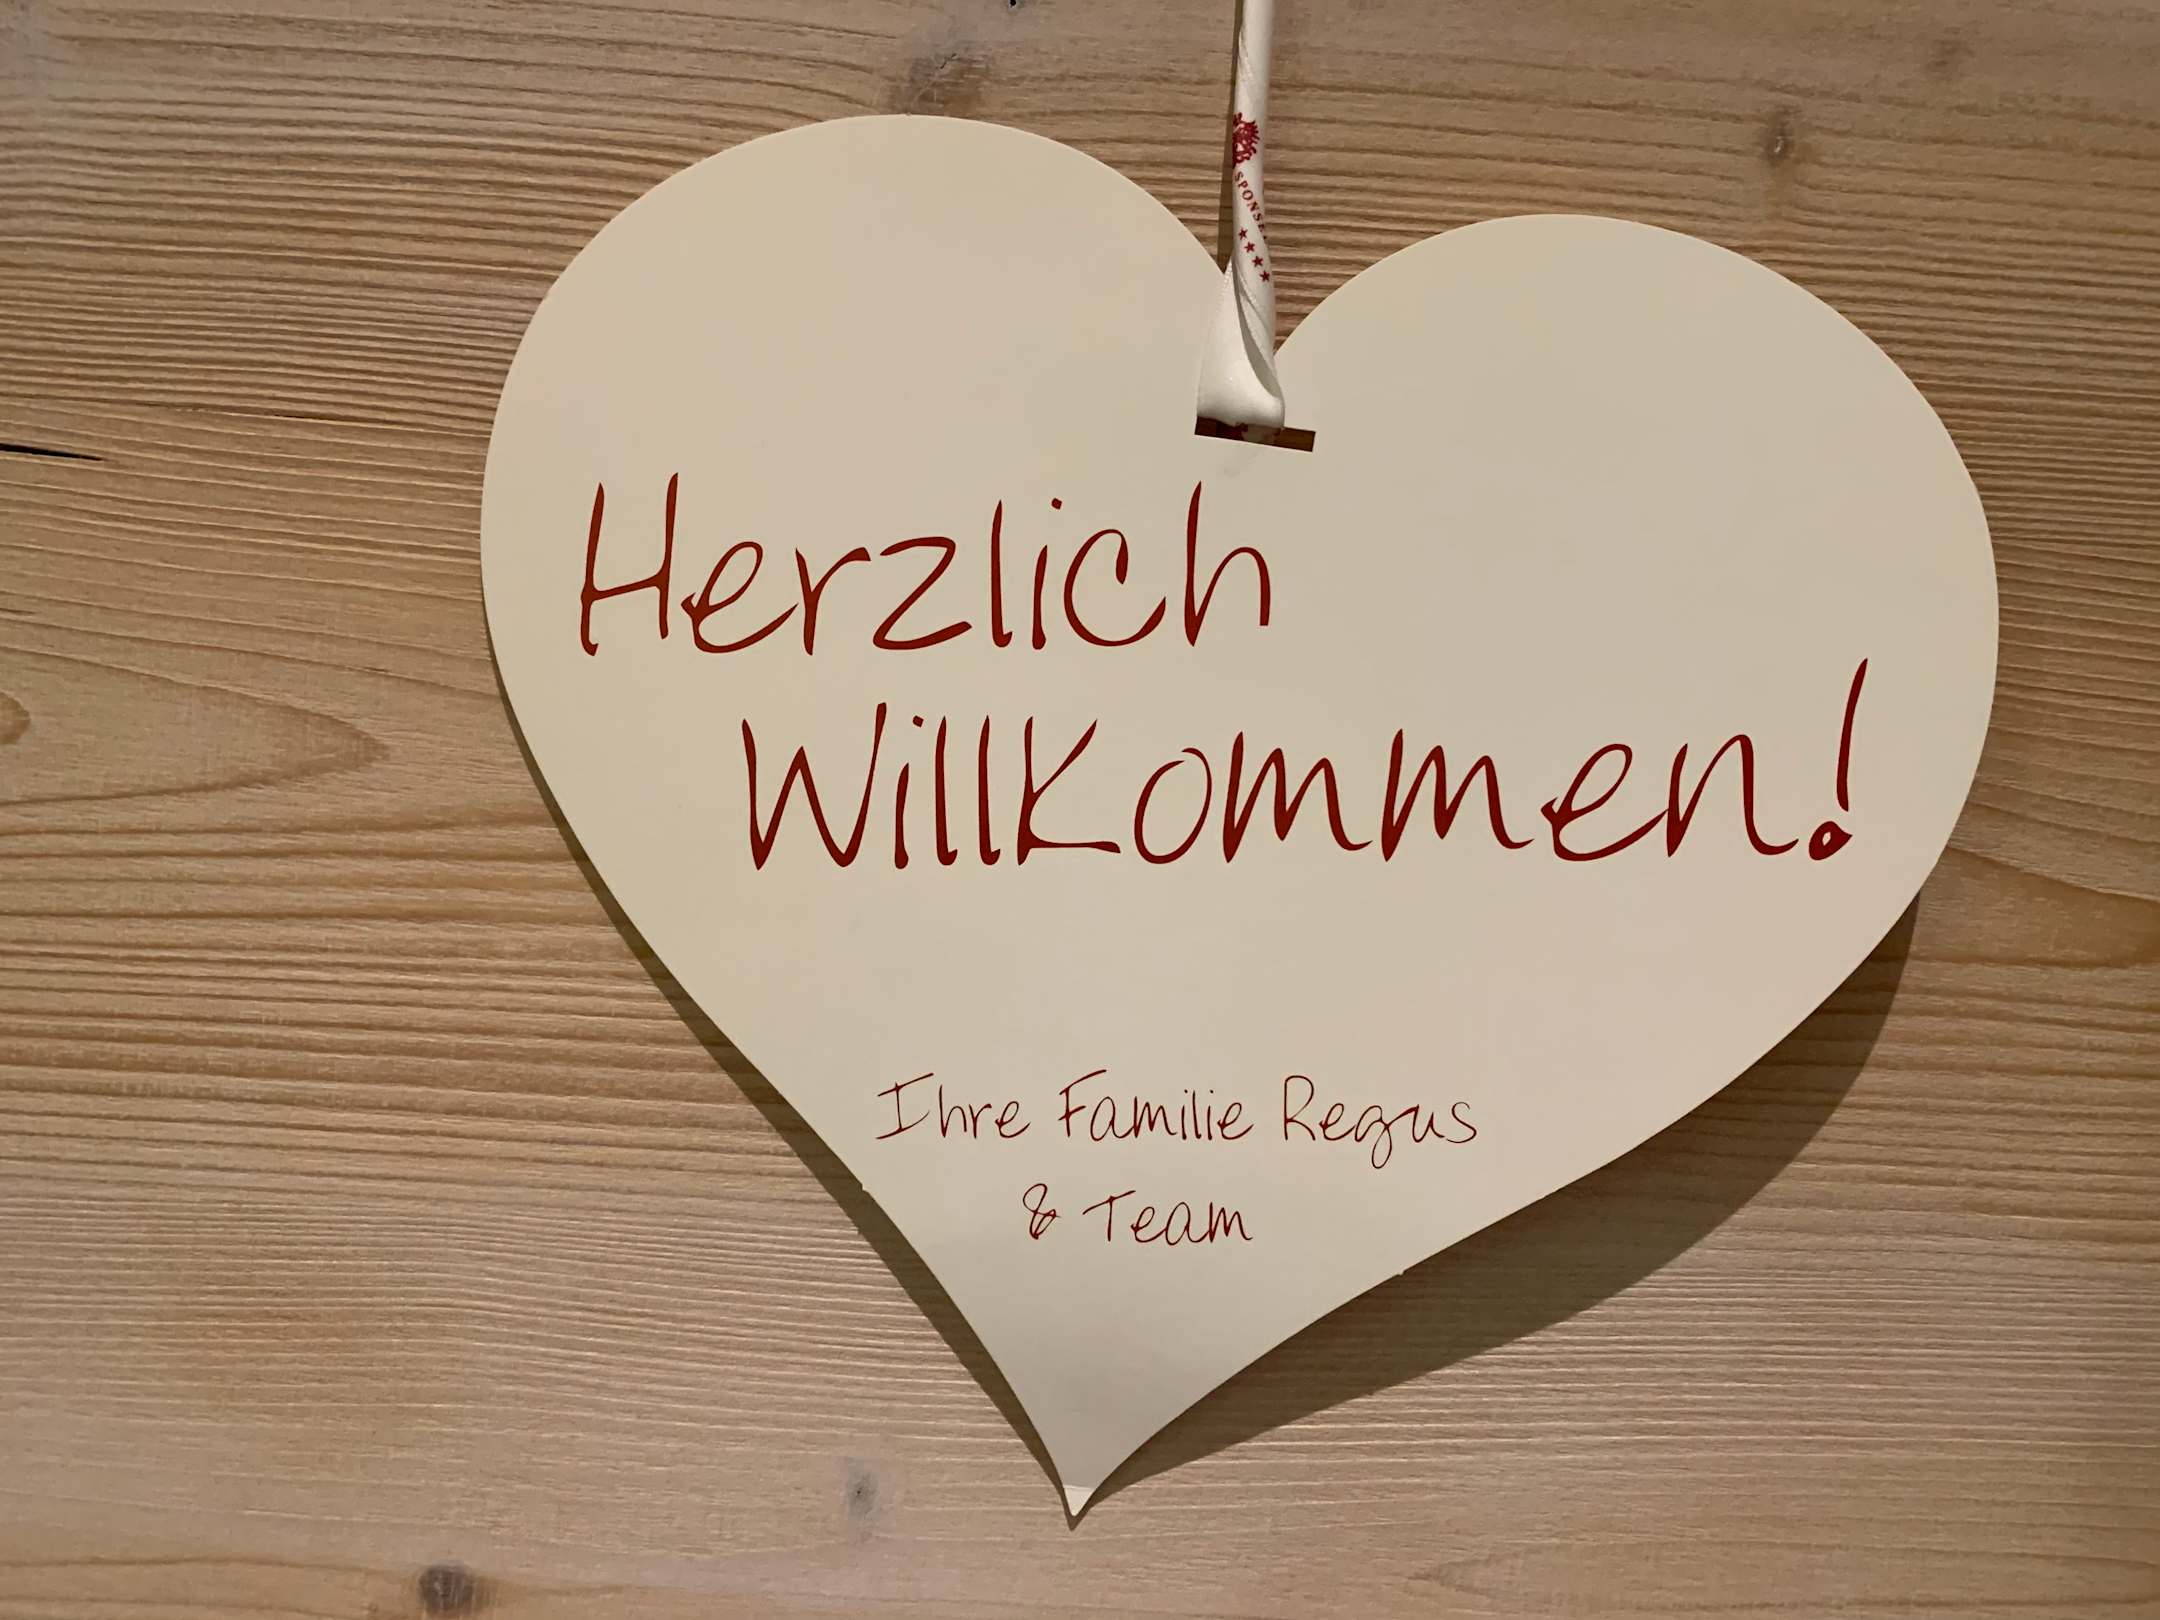 SPONSE
★★★★
Herzlich
Willkommen!
Ihre Familie Regus
& Team